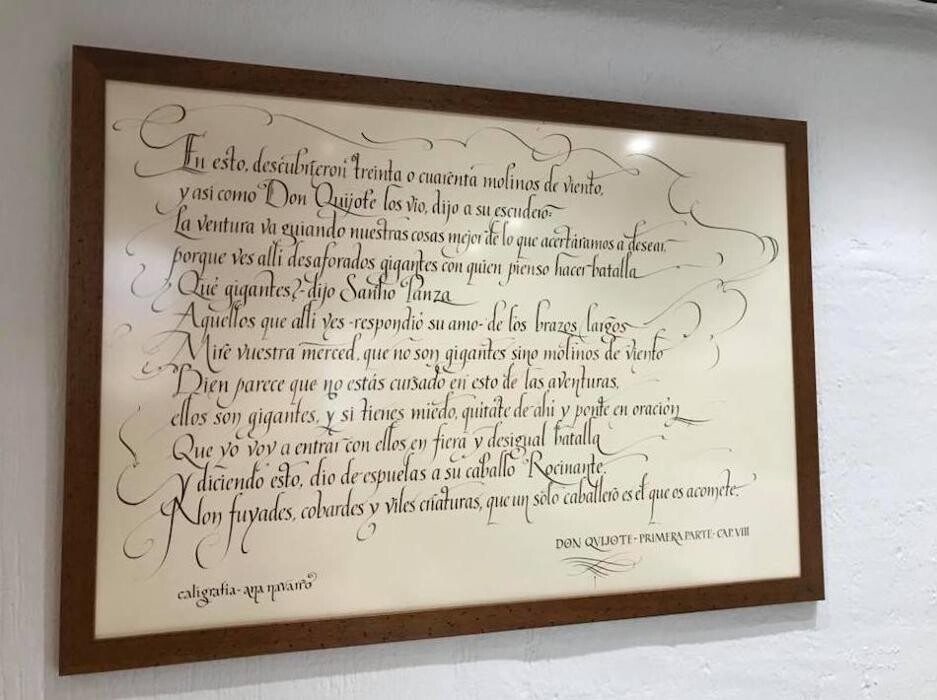 En esto, descubrieron treinta o cuarenta molinos de viento,
y asi como Don Quijote los vio, dijo a su escudero:
La ventura va guiando nuestras cosas mejor de lo que acertáramos a desear,
porque ves alli desaforados gigantes con quien pienso hacer batalla
Qué gigantes?-dijo Sancho Panza
Aquellos que alli ves -respondió su amo- de los brazos largos
Mire vuestra merced, que no son gigantes sino molinos de viento
Bien parece que no estás cursado en esto de las aventuras,
ellos son gigantes, y si tienes miedo, quitate de ahi y ponte en oración
Que yo voy a entrar con ellos en fiera y desigual batalla
y diciendo esto, dio de espuelas a su caballo Rocinante.
Non fuyades, cobardes y viles criaturas, que un solo caballero es el que os acomete.
DON QVIJOTE-PRIMERA PARTE-CAP. VIII
caligrafia-ana navarro